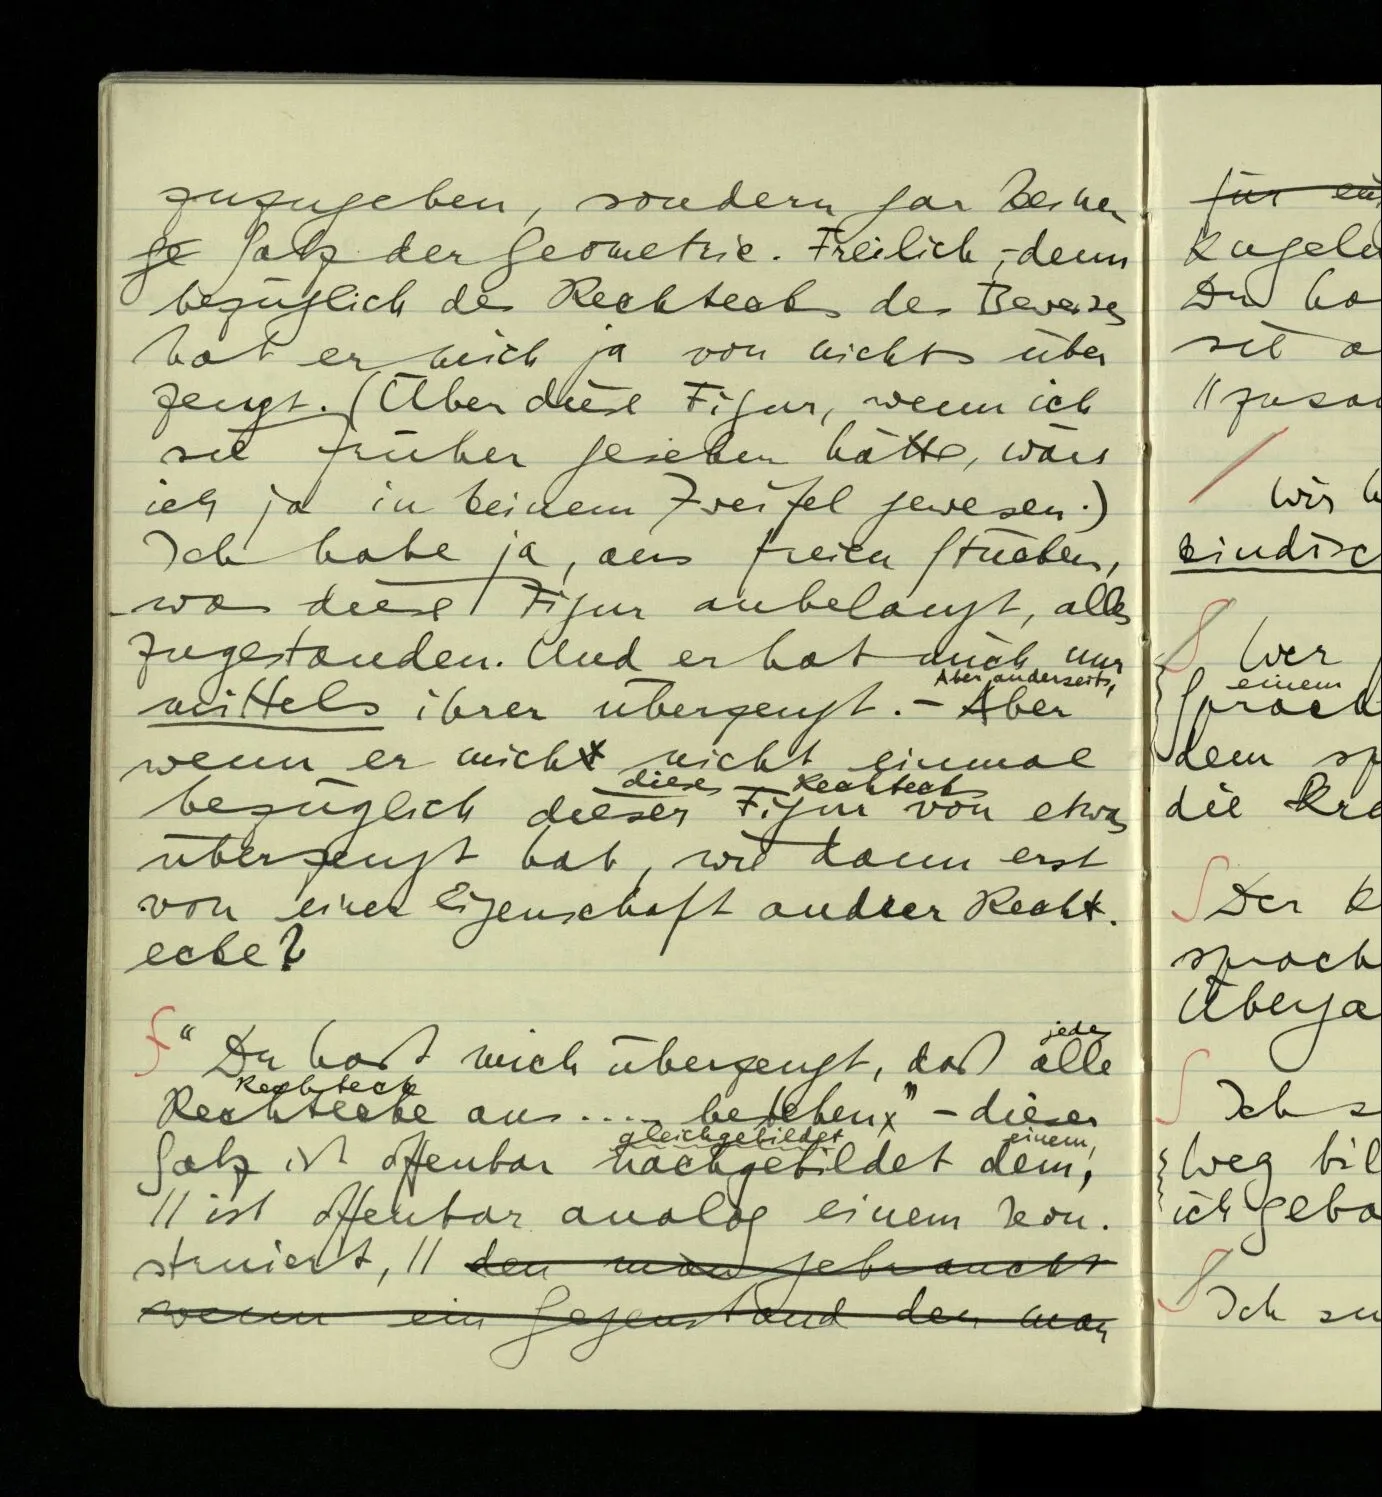 zuzugeben, sondern gar keinen
ge Satz der Geometrie. Freilich, – denn
bezüglich des Rechtecks des Beweises
hat er mich ja von nichts über
zeugt. (Über diese Figur, wenn ich
sie früher gesehen hätte, wäre
ich ja in keinem Zweifel gewesen.)
Ich habe ja, aus freien Stücken,
was diese Figur anbelangt, alles
zugestanden. Und er hat mich nur
Aber anderseits,
mittels ihrer überzeugt. – Aber
wenn er mich nicht einmal
dieses Rechtecks
bezüglich dieser Figur von etwas
überzeugt hat, wie dann erst
von einer Eigenschaft andrer Recht-
ecke?
jedes
∫ “Du hast mich überzeugt, daß alle
Rechteck
Rechtecke aus .... bestehen” – dieser
gleichgebildet einem,
Satz ist offenbar nachgebildet dem,
// ist offenbar analog einem kon-
struiert, // den man gebraucht
wenn ein Gegenstand den man
für ein
Kugeln
Du ha
sie a
// zusa
/ Wir h
kindisc
∫ Wer
einem
Sprach
dem sp
die Kra
∫ Der k
sprach
Überga
∫ Ich s
Weg bil
ich geba
∫ Ich su